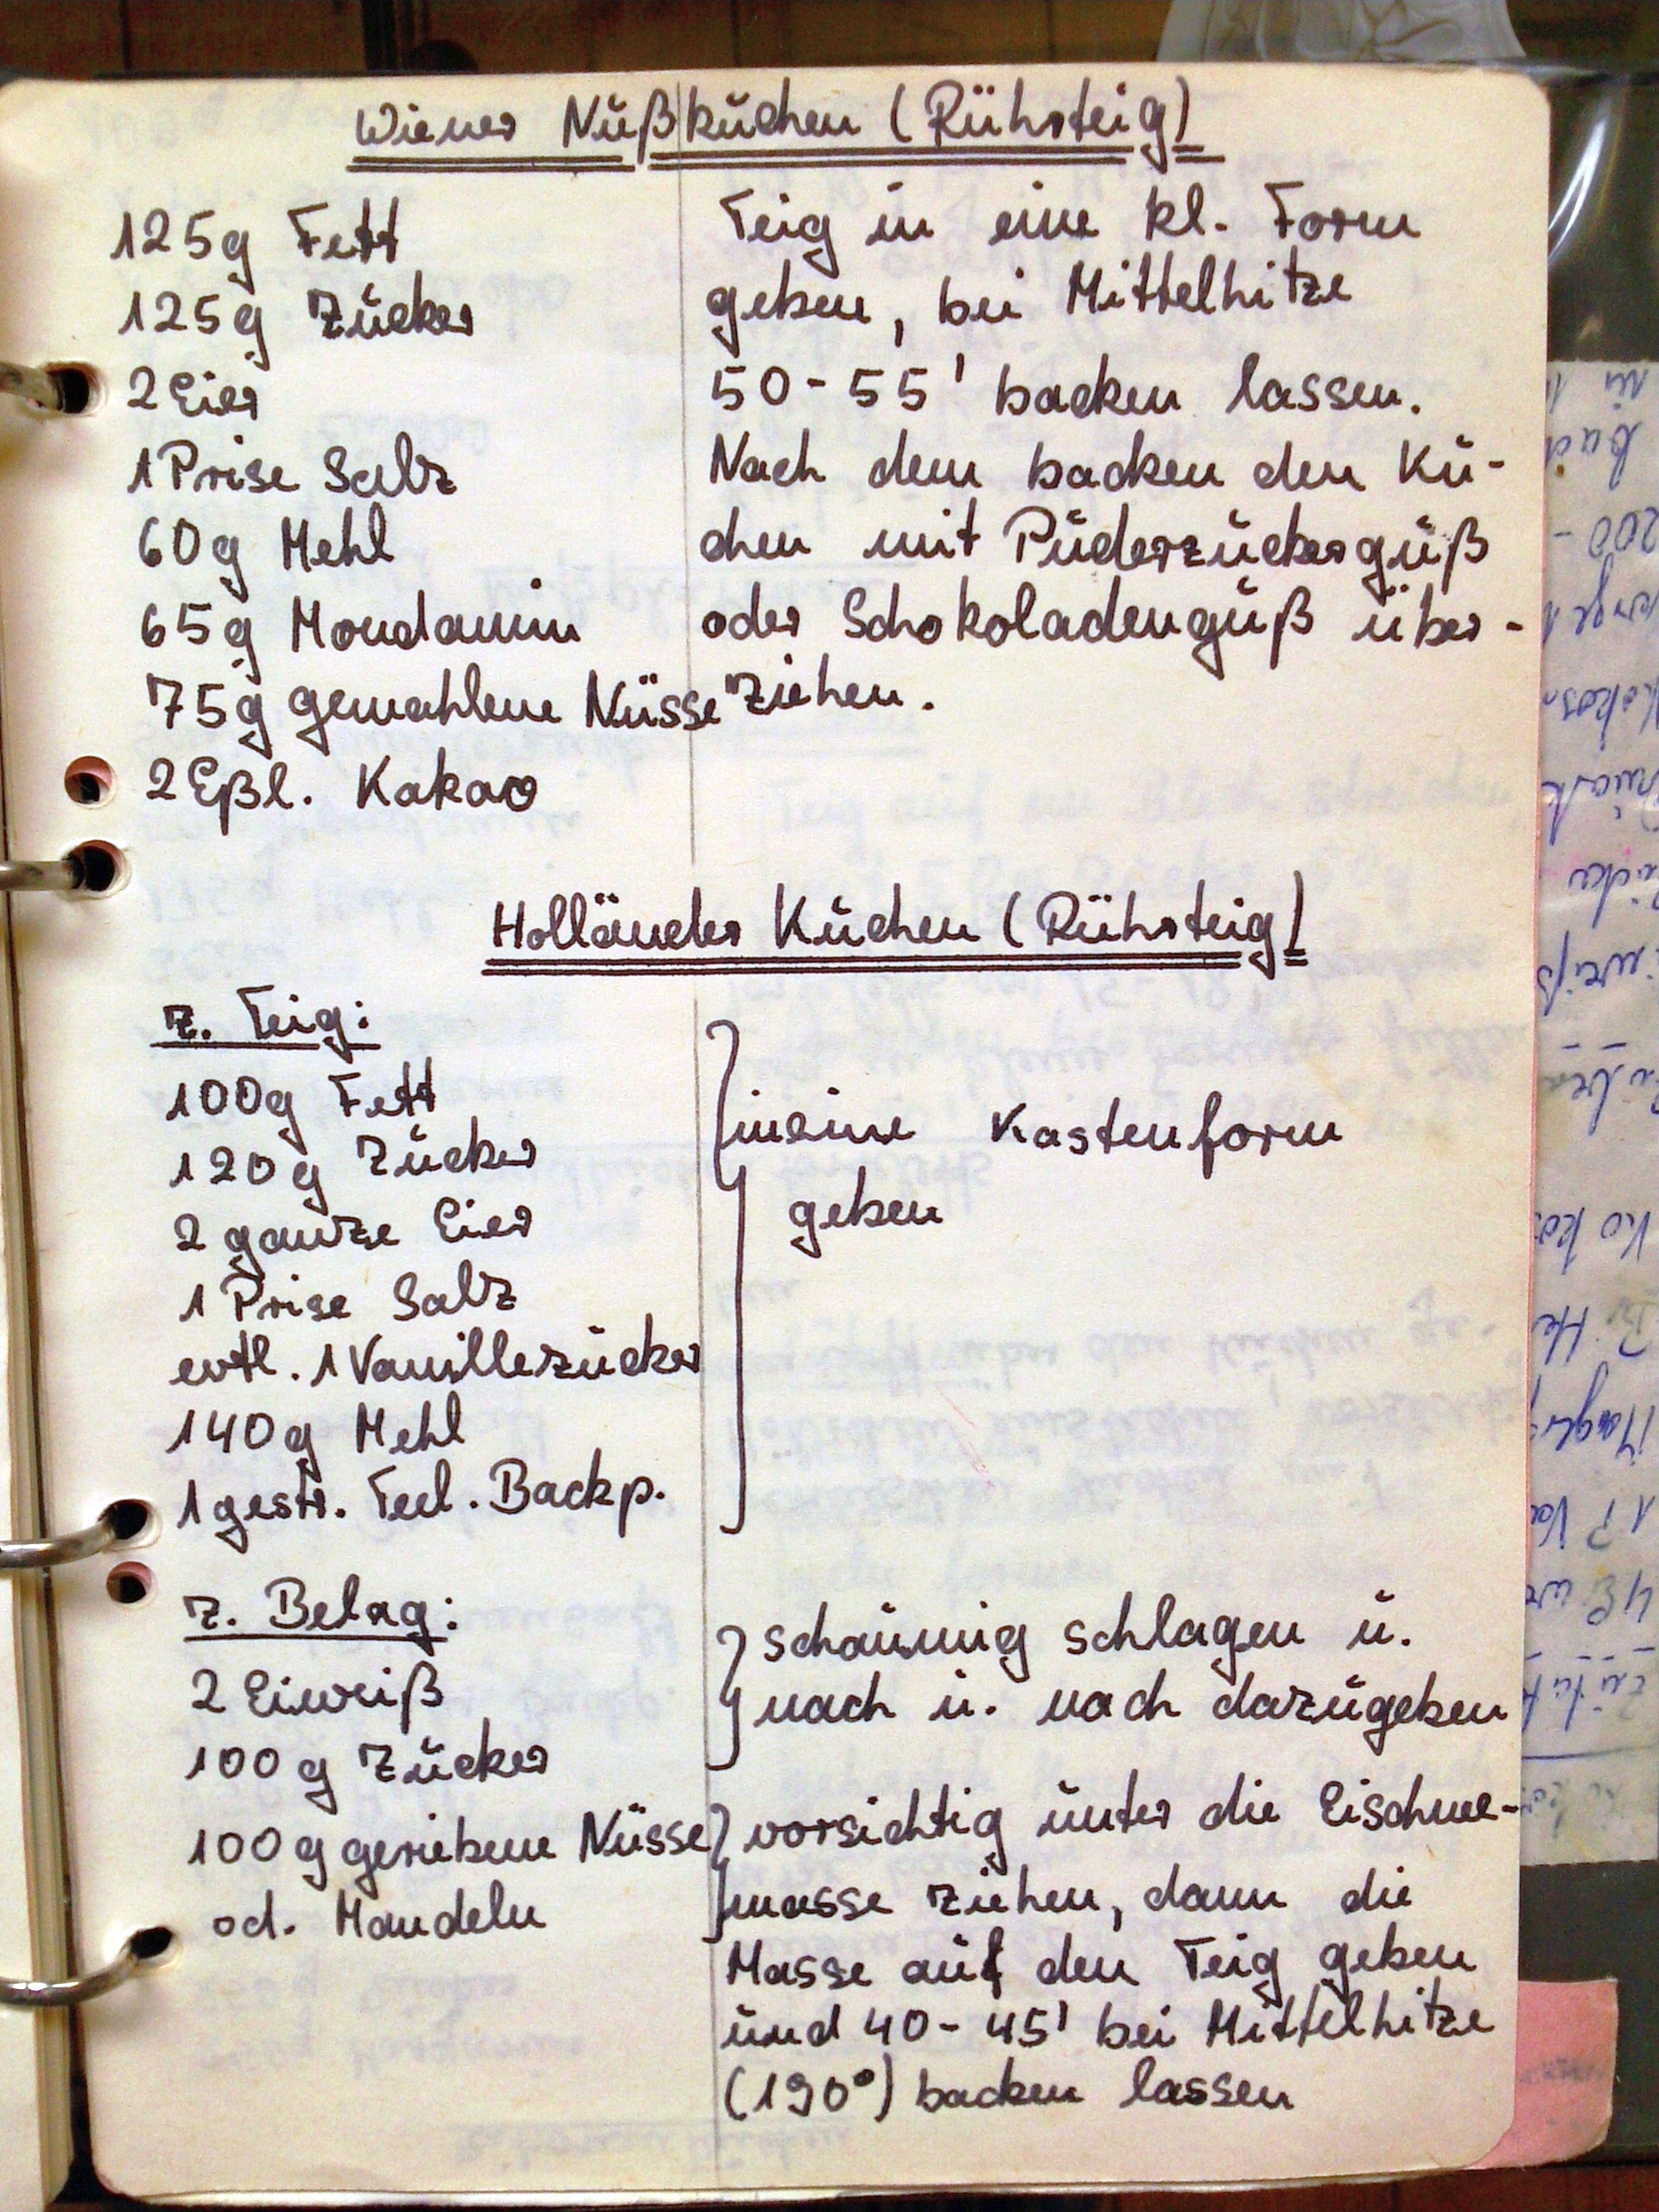 Wiener Nußkuchen (Rührteig)
125g Fett
125g Zucker
2 Eier
1 Prise Salz
60g Mehl
65g Mondamin
75g gemahlene Nüsse
2 Eßl. Kakao
Teig in eine kl. Form
geben, bei Mittelhitze
50-55' backen lassen.
Nach dem backen den Ku-
chen mit Puderzuckerguß
oder Schokoladenguß über-
ziehen.
Holländer Kuchen (Rührteig)
z. Teig:
100g Fett
120g Zucker
2 ganze Eier
1 Prise Salz
evtl. 1 Vanillezucker
140g Mehl
1 gestr. Teel. Backp.
in eine Kastenform
geben
z. Belag:
2 Eiweiß
100g Zucker
100g geriebene Nüsse
od. Mandeln
schaumig schlagen u.
nach u. nach dazugeben
vorsichtig unter die Eischnee-
masse ziehen, dann die
Masse auf den Teig geben
und 40-45' bei Mittelhitze
(190°) backen lassen